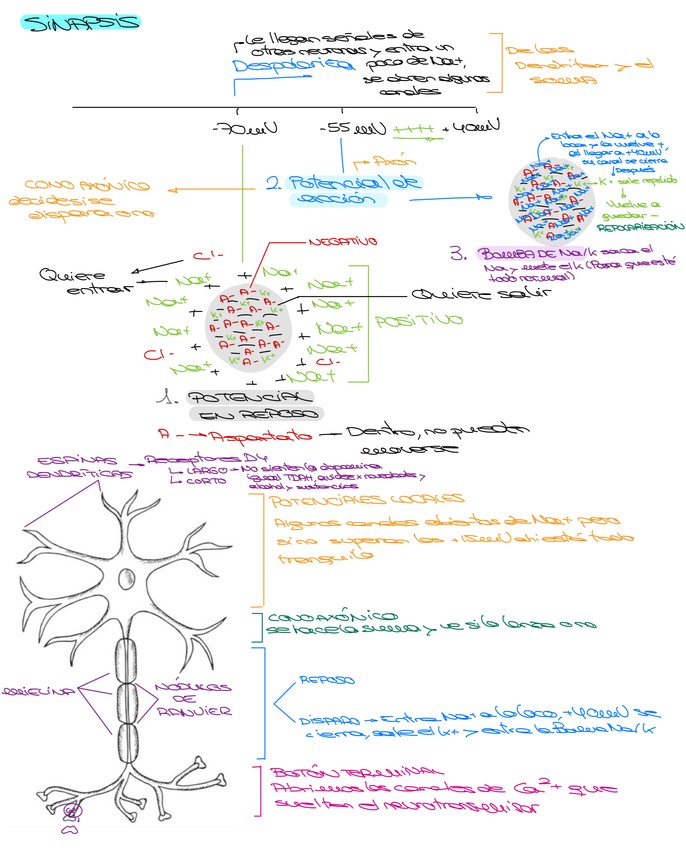 SINAPSIS
Le llegan señales de
otras neuronas y entra un
Despolariza poco de Na+,
se abren algunos
canales
De las
Dendritas y el
soma
-70mV
-55mV
++++
+40mV
Axón
2. Potencial de
acción
CONO AXÓNICO
decide si se
dispara o no
Entra el Na+ a lo
loco y lo vuelve +
al llegar a +40mV
su canal se cierra
Después
K+ sale repelido
Vuelve a
quedar -
REPOLARIZACIÓN
3. BOMBA DE Na/K saca el
Na y mete el K (Para que esté
todo normal)
Cl-
NEGATIVO
Quiere
entrar
Na+
Na+
Na+
Na+
Na+
Na+
Na+
Na+
Na+
Na+
Cl-
Cl-
A-
K+
Quiere salir
POSITIVO
1. POTENCIAL
EN REPOSO
A- → Aspartato — Dentro, no pueden
moverse
ESPINAS
DENDRÍTICAS
Receptores D4
LARGO → No siente la dopamina
igual TDAH, avidez x novedades y
alcohol y sustancias
CORTO
POTENCIALES LOCALES
Algunos canales abiertos de Na+ pero
si no superan los +15mV ahí está todo
tranquilo
CONO AXÓNICO
se hace la suma y ve si lo lanza o no
MIELINA
NÓDULOS
DE
RANVIER
REPOSO
DISPARO → Entra Na+ a lo loco, +40mV se
cierra, sale el K+ y entra la Bomba Na/K
BOTÓN TERMINAL
Abrimos los canales de Ca2+ que
sueltan el neurotransmisor